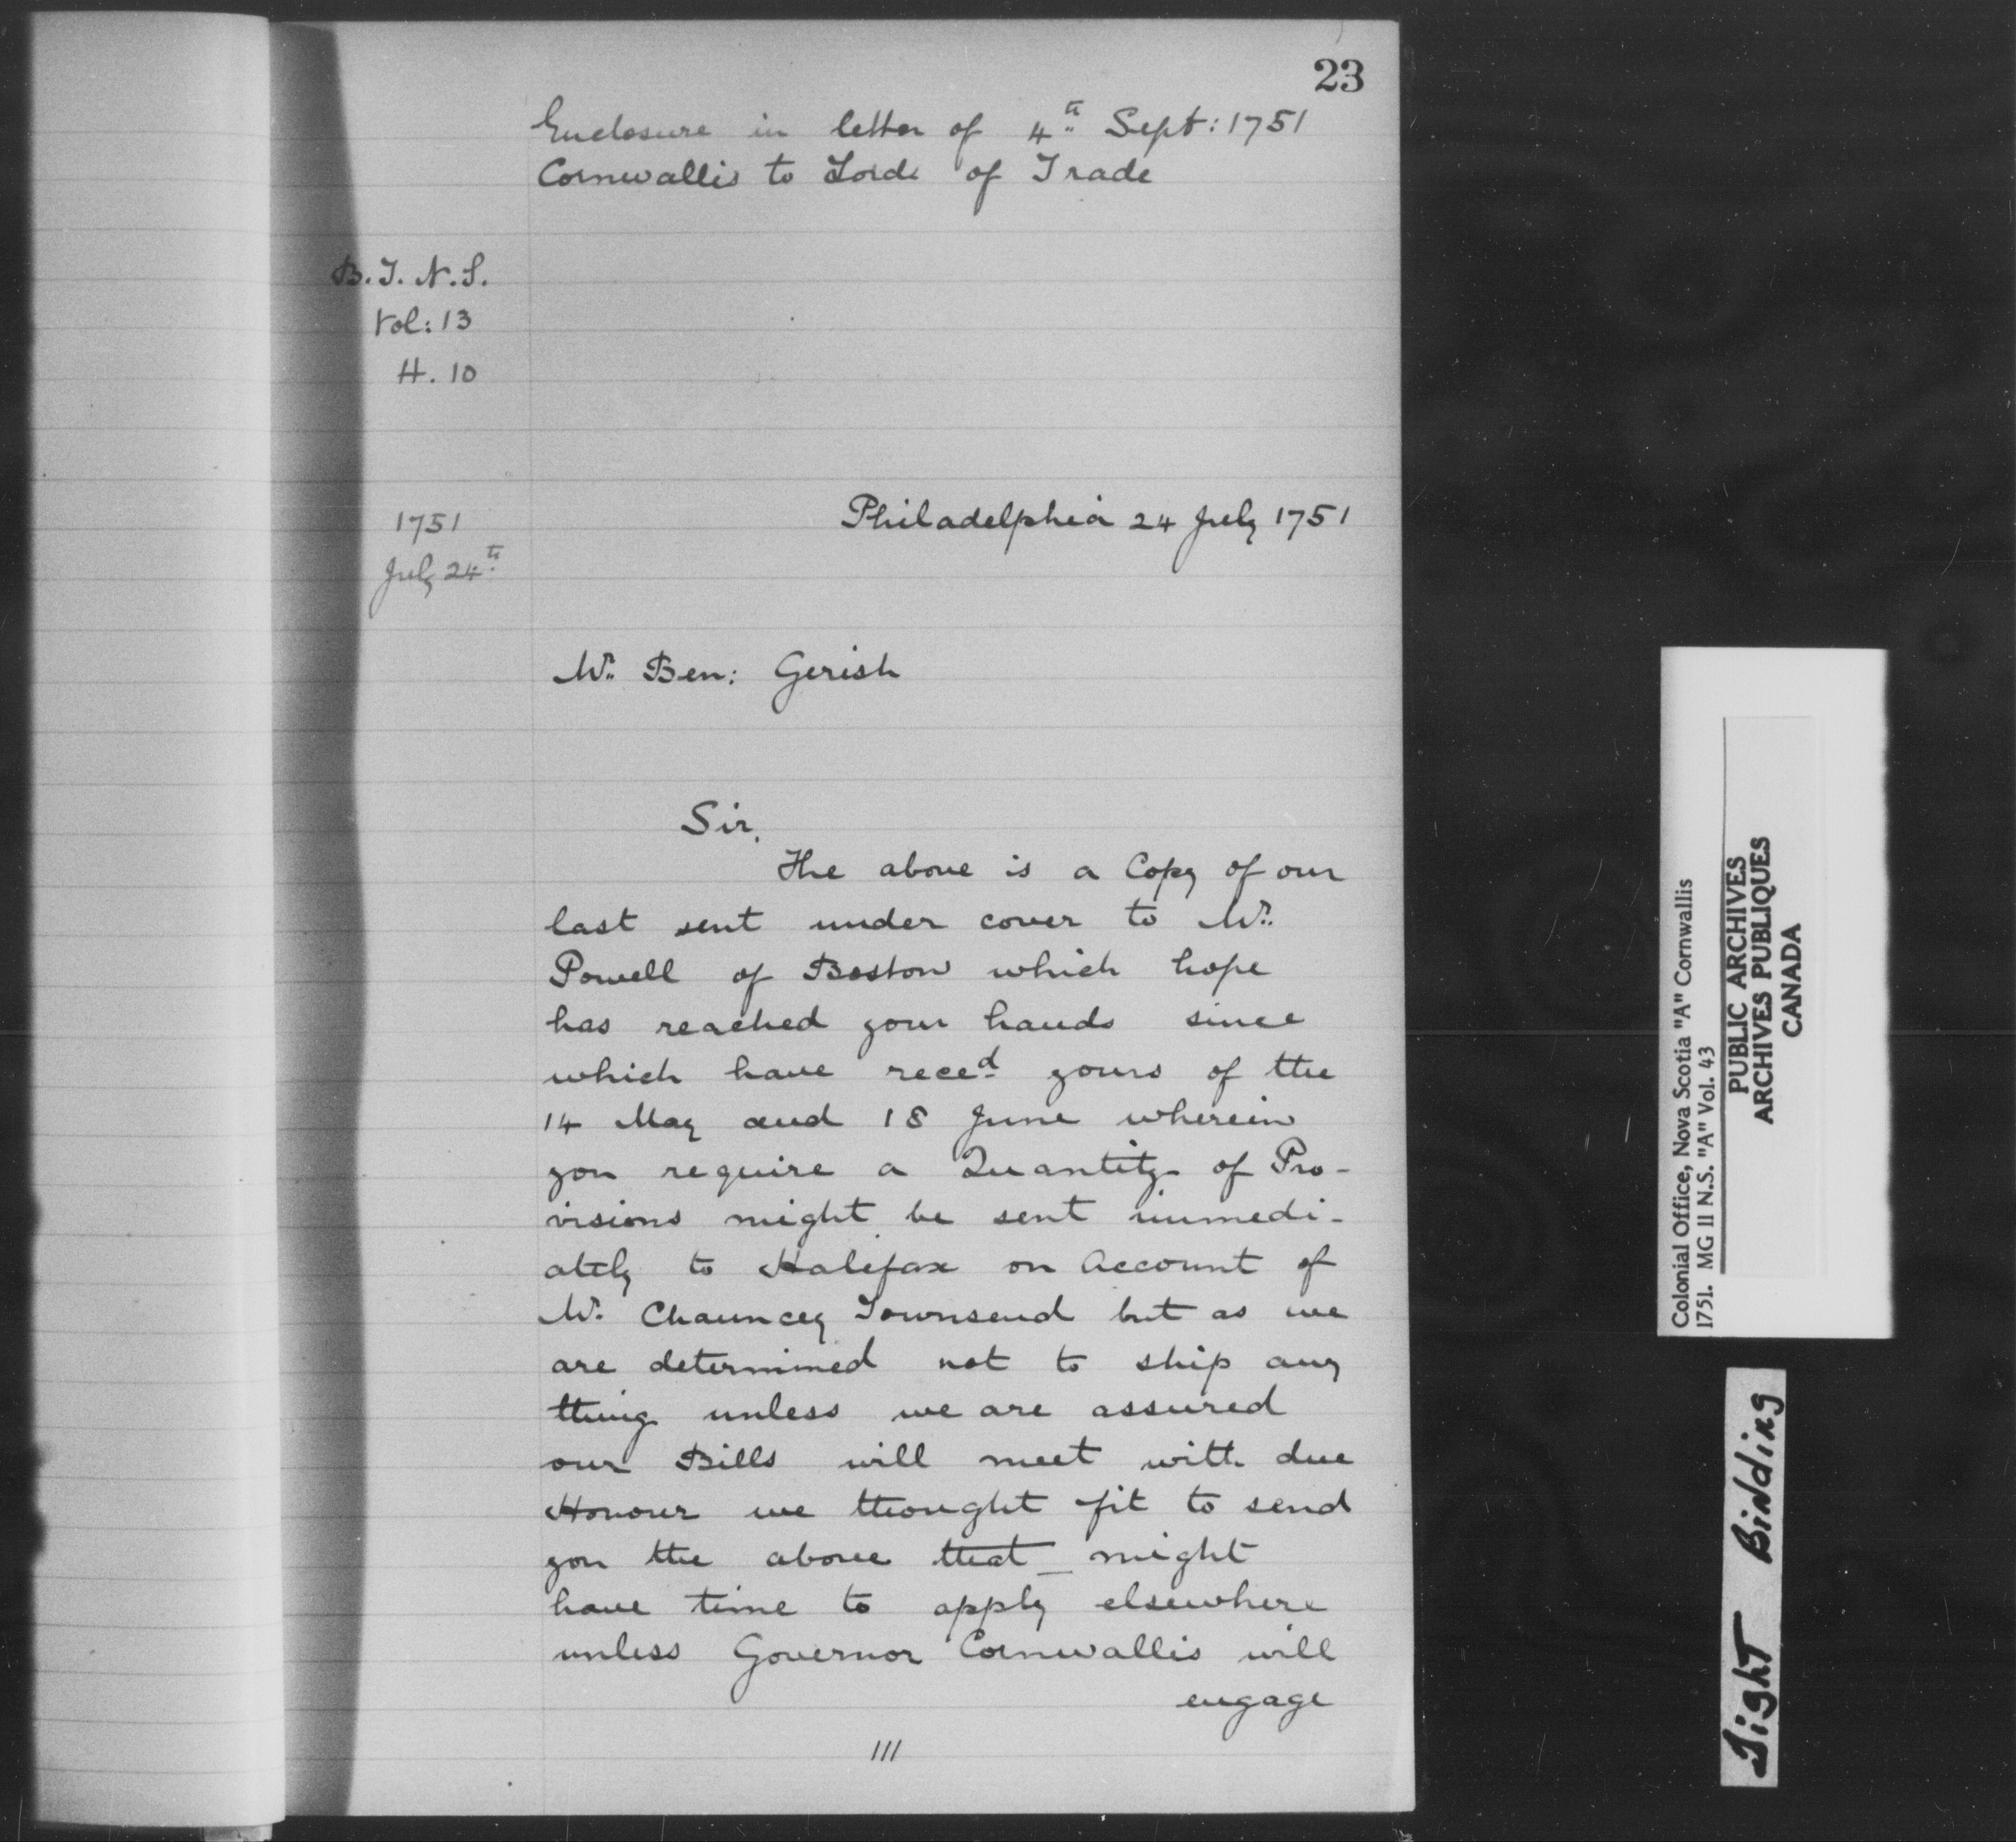 23
Enclosure in letter of 4th Sept: 1751
Cornwallis to Lords of Trade
B.T. N.S.
Vol: 13
H. 10
1751
July 24th
Philadelphia 24 July 1751
Mr. Ben: Gerish
Sir,
The above is a Copy of our
last sent under cover to Mr.
Powell of Boston which hope
has reached your hands since
which have reced yours of the
14 May and 18 June wherein
you require a Quantity of Pro-
visions might be sent immedi-
ately to Halifax on Account of
Mr. Chauncey Townsend but as we
are determined not to ship any
thing unless we are assured
our Bills will meet with due
Honour we thought fit to send
you the above that _ might
have time to apply elsewhere
unless Governor Cornwallis will
engage
111
Colonial Office, Nova Scotia "A" Cornwallis
1751. MG 11 N.S. "A" Vol. 43
PUBLIC ARCHIVES
ARCHIVES PUBLIQUES
CANADA
Tight Binding